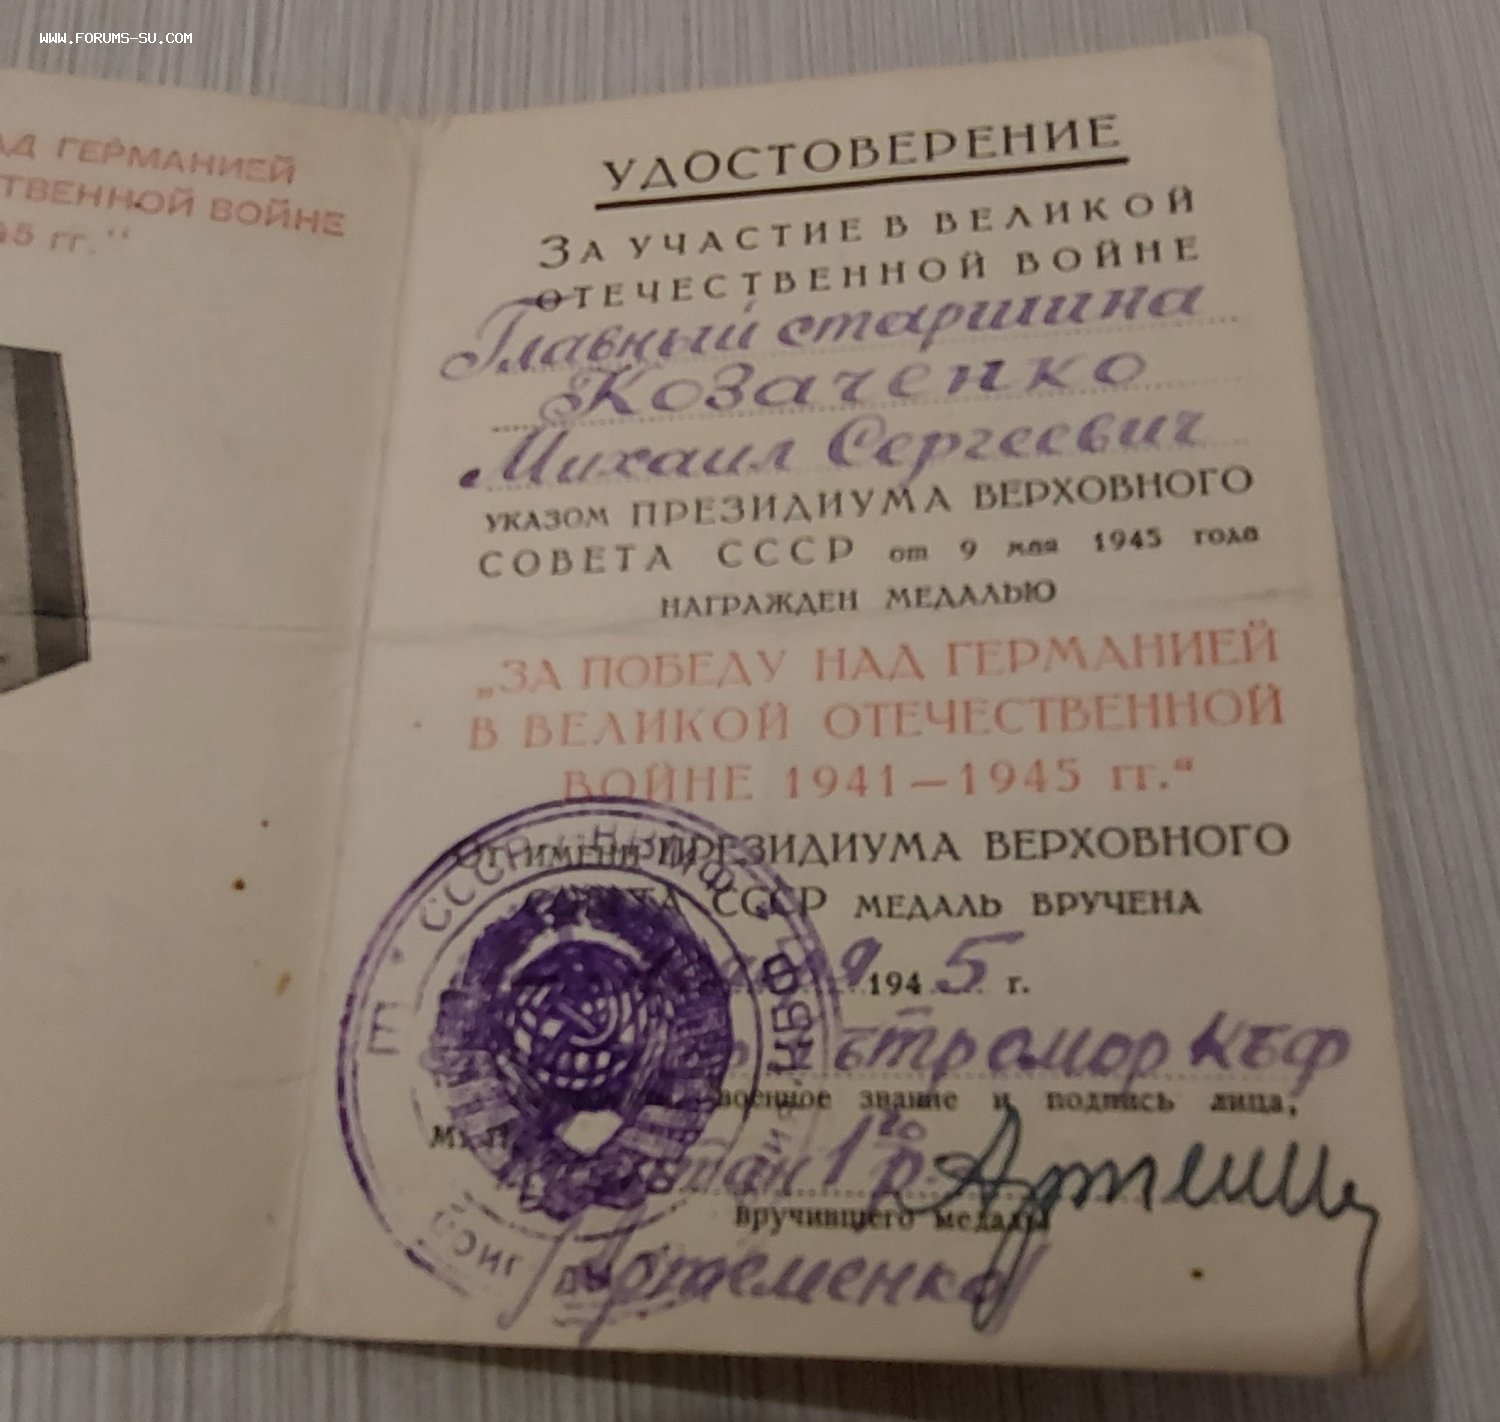 www.forums-su.com
АД ГЕРМАНИЕЙ
ТВЕННОЙ ВОЙНЕ
45 гг.“
УДОСТОВЕРЕНИЕ
ЗА УЧАСТИЕ В ВЕЛИКОЙ
ОТЕЧЕСТВЕННОЙ ВОЙНЕ
Главный старшина
Козаченко
Михаил Сергеевич
УКАЗОМ ПРЕЗИДИУМА ВЕРХОВНОГО
СОВЕТА СССР от 9 мая 1945 года
НАГРАЖДЕН МЕДАЛЬЮ
„ЗА ПОБЕДУ НАД ГЕРМАНИЕЙ
В ВЕЛИКОЙ ОТЕЧЕСТВЕННОЙ
ВОЙНЕ 1941—1945 гг.“
От ИМЕНИ ПРЕЗИДИУМА ВЕРХОВНОГО
СОВЕТА СССР МЕДАЛЬ ВРУЧЕНА
1945 г.
КБФ
военное звание и подпись лица,
М. П.
капитан 1го р.
вручившего медаль
/Артеменко/